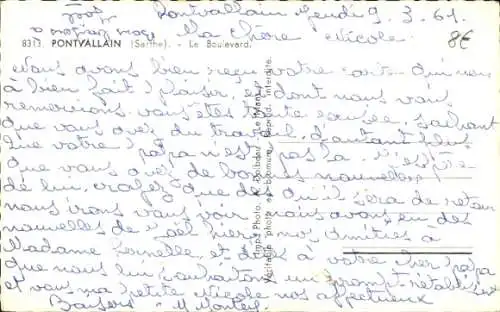 Pontvallain Jeudi 9.3.61.
Ma chère Nicole.
8313. PONTVALLAIN (Sarthe). - Le Boulevard.
8€
Nous avons bien reçu votre carte qui nous
à bien fait plaisir, et dont nous vous
remercions, vous êtes toute excusée, sachant
que vous avez du travail, d'autant plus
que votre papa n'est pas là. J'espère
que vous avez de bonnes nouvelles
de lui, croyez que dès qu'il sera de retour
nous irons vous voir, nous avons eu des
nouvelles de Noël hier, mes amitiés à
Madame et dites à votre cher papa
que nous lui souhaitons un prompt rétablissement
et vous ma petite Nicole nos affectueux
Baisers
Timpa Photo.
Le Mans
Véritable photo au bromure. Reprod. interdite.